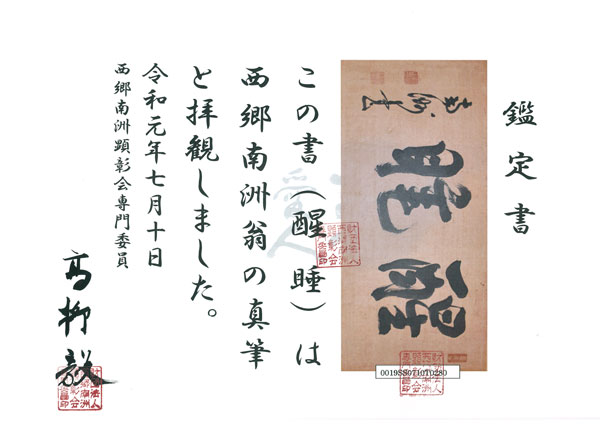 鑑定書
醒睡
南洲書
0019SS0710T0280
この書(醒睡)は
西郷南洲翁の真筆
と拝観しました。
令和元年七月十日
西郷南洲顕彰会専門委員
高柳毅